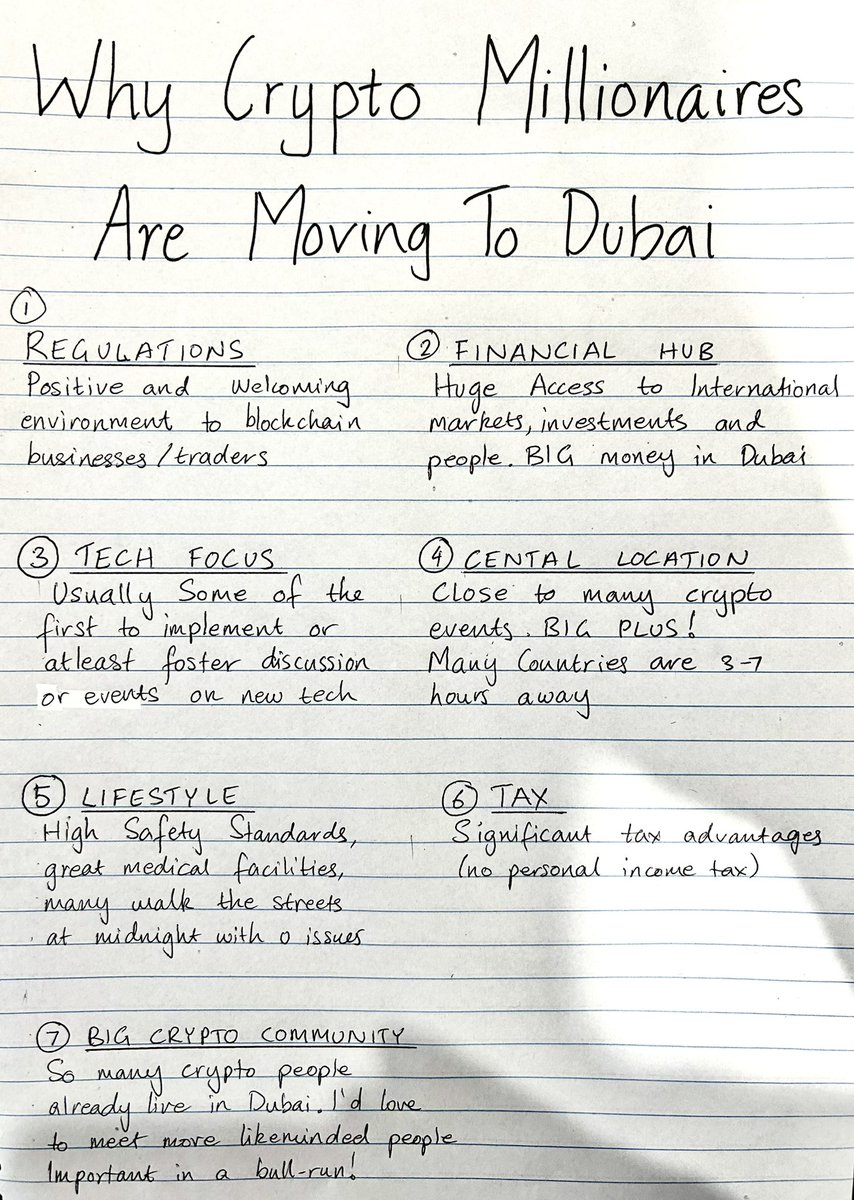 Why Crypto Millionaires
Are Moving To Dubai
1
REGULATIONS
Positive and welcoming
environment to blockchain
businesses/traders
2 FINANCIAL HUB
Huge Access to International
markets, investments and
people. BIG money in Dubai
3 TECH FOCUS
Usually Some of the
first to implement or
atleast foster discussion
or events on new tech
4 CENTAL LOCATION
Close to many crypto
events. BIG PLUS!
Many Countries are 3-7
hours away
5 LIFESTYLE
High Safety Standards,
great medical facilities,
many walk the streets
at midnight with 0 issues
6 TAX
Significant tax advantages
(no personal income tax)
7 BIG CRYPTO COMMUNITY
So many crypto people
already live in Dubai. I'd love
to meet more likeminded people
Important in a bull-run!